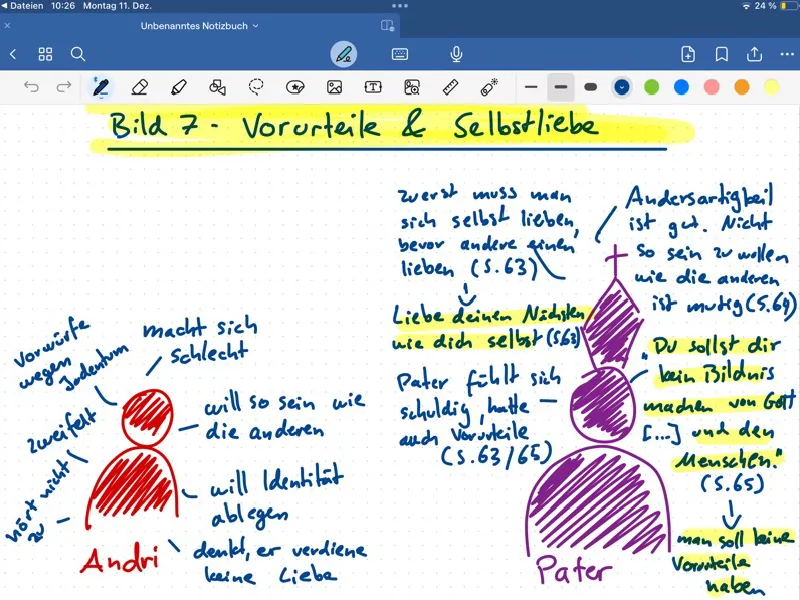 Dateien 10:26 Montag 11. Dez.
24 %
Unbenanntes Notizbuch
Bild 7 - Vorurteile & Selbstliebe
zuerst muss man
sich selbst lieben,
bevor andere einen
lieben (S. 63)
Liebe deinen Nächsten
wie dich selbst (S.63)
Pater fühlt sich
schuldig, hatte
auch Vorurteile
(S. 63/65)
Andersartigkeit
ist gut. Nicht
so sein zu wollen
wie die anderen
ist mutig (S.64)
"Du sollst dir
kein Bildnis
machen von Gott
[...] und den
Menschen."
(S. 65)
man soll keine
Vorurteile
haben
Pater
Vorwürfe
wegen
Judentum
macht sich
schlecht
zweifelt
will so sein wie
die anderen
hört nicht
zu
will Identität
ablegen
denkt, er verdiene
keine Liebe
Andri